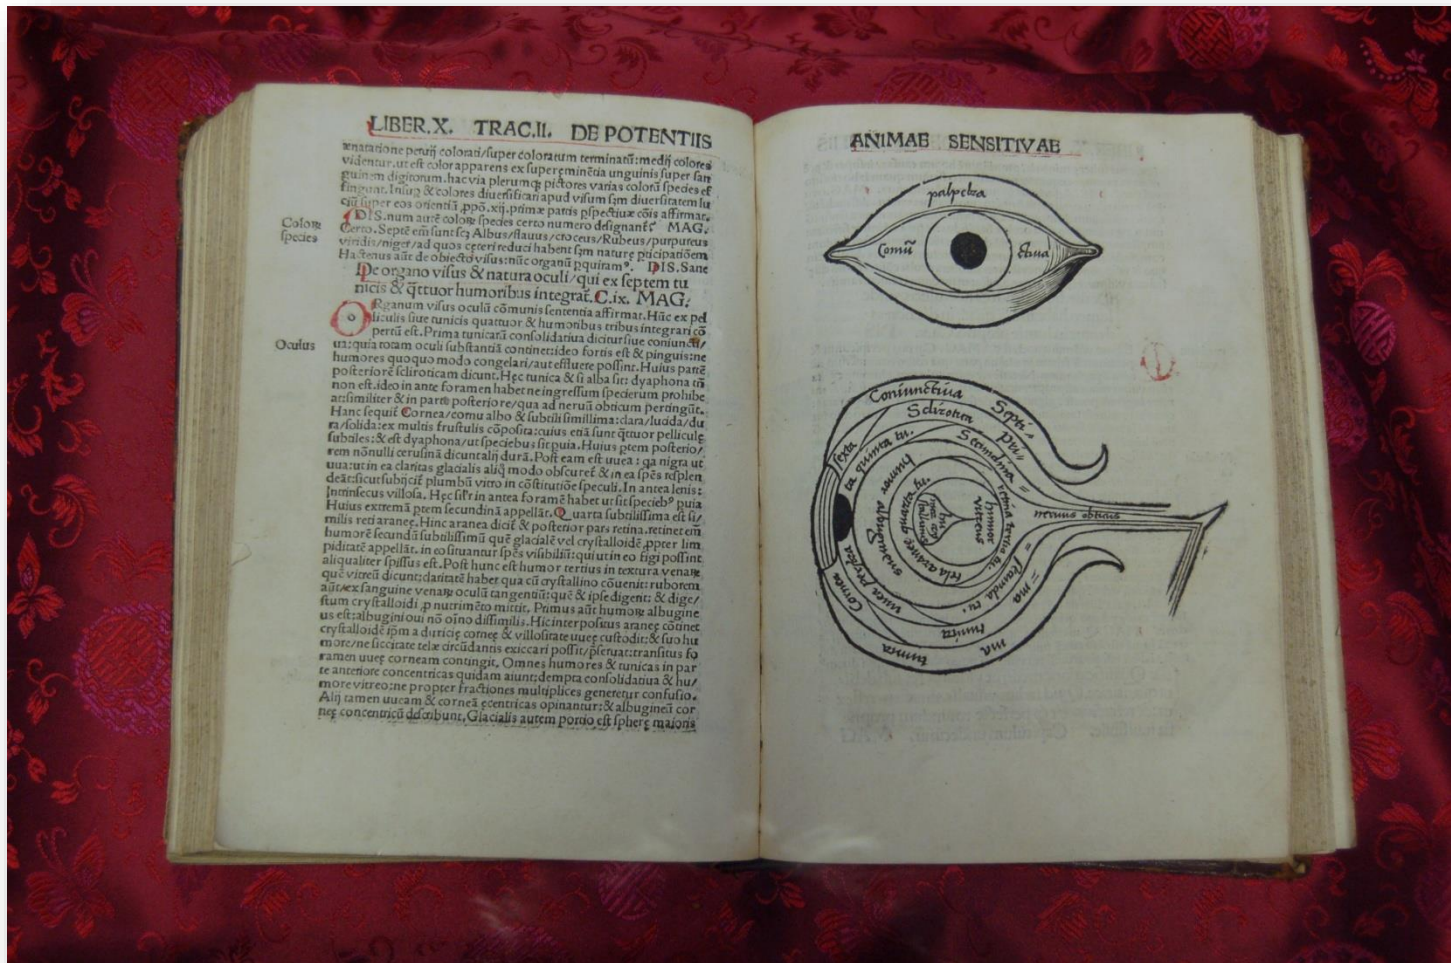 LIBER.X. TRAC.II. DE POTENTIIS
ænatatione peruij colorati/super coloratum terminatū:medij colores
videntur.ut est color apparens ex supereminētia unguinis super san
guinem digitorum.hac via plerumq; pictores varias colorū species ef
fingunt. Insup & colores diuersificari apud visum sm diuersitatem lu
ciū super eos orientiā .ppō.xij.primæ partis pspectiuæ cōis affirmat.
DIS.num autē coloꝝ species certo numero designant MAG.
Coloꝝ
species
Certo.Septē em sunt scꝫ Albus/flauus/croceus/Rubeus/purpureus
viridis/niger/ad quos ceteri reduci habent sm nature pticipatiōem
Hactenus aūt de obiecto visus:nūc organū pquiramꝰ. DIS.Sane
De organo visus & natura oculi/qui ex septem tu
nicis & q̄ttuor humoribus integrat̄.C.ix. MAG.
ORganum visus oculū cōmunis sententia affirmat. Hūc ex pel
liculis siue tunicis quattuor & humoribus tribus integrari cō
Oculus
pertū est. Prima tunicarū consolidatiua dicitur siue coniuncti/
ua:quia totam oculi substantiā continet:ideo fortis est & pinguis:ne
humores quoquo modo congelari/aut effluere possint. Huius partē
posteriorē scliroticam dicunt. Hęc tunica & si alba sit: dyaphona tn̄
non est.ideo in ante foramen habet ne ingressum specierum prohibe
at:similiter & in parte posteriore/qua ad neruū obticum pertingūt.
Hanc sequit̄ Cornea/cornu albo & subtili simillima:clara/lucida/du
ra/solida:ex multis frustulis cōposita:cuius etiā sunt q̄ttuor pelliculę
subtiles:& est dyaphona/ut speciebus sit puia. Huius ptem posterio/
rem nōnulli cerusinā dicunt alij durā. Post eam est uuea : qa nigra ut
uua:ut in ea claritas glacialis aliq̄ modo obscuret̄ & in ea spēs resplen
deāt:sicut subijcit̄ plumbū vitro in cōstitutiōe speculi. In antea lenis:
Intrinsecus villosa. Hęc silr in antea foramē habet ut sit speciebꝰ puia
Huius extremā ptem secundinā appellāt. Quarta subtilissima est si/
milis reti araneę. Hinc aranea dicit̄ & posterior pars retina.retinet em̄
humorē secundū subtilissimū quē glacialē vel crystalloidē .ppter lim
piditatē appellāt. in eo situantur spēs visibiliū:qui ut in eo figi possint
aliqualiter spissus est. Post hunc est humor tertius in textura venaꝝ
quē vitreū dicunt:claritatē habet qua cū crystallino cōuenit: ruborem
aūt/ex sanguine venaꝝ oculū tangentiū:quē & ipse digerit: & dige/
stum crystalloidi .p nutrimēto mittit. Primus aūt humoꝝ albugine
us est:albugini oui nō oīno dissimilis. Hic inter positus araneę cōtinet
crystalloidē ipm a duricię corneę & villositate uueę custodit:& suo hu
more/ne siccitate telæ circūdantis exiccari possit/pseruat:transitus fo
ramen uueę corneam contingit. Omnes humores & tunicas in par
te anteriore concentricas quidam aiunt:dempta consolidatiua & hu/
more vitreo:ne propter fractiones multiplices generetur confusio.
Alij tamen uueam & corneā ęcentricas opinantur:& albugineū cor
neę concentricū describunt. Glacialis autem portio est spherę maioris
ANIMAE SENSITIVAE
palpebra
Comū
ctiua
Coniunctiua
Sclirotica
Septi=
pri=
Secundina
sexta
ta quinta tu.
retina tertia tu.
humor albugineus
tela aranee quarta tu.
humor vitreus
neruus obticus
Cornea
vuea
secunda tu.
=ma
tunica
ma
tunica